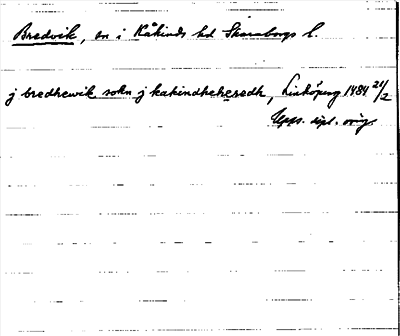 Bredvik, sn i Kåkinds hd Skaraborgs l.
j bredhewik sokn j kakindhehæredh, Linköping 1484 21/2
Upps. dipl. orig.